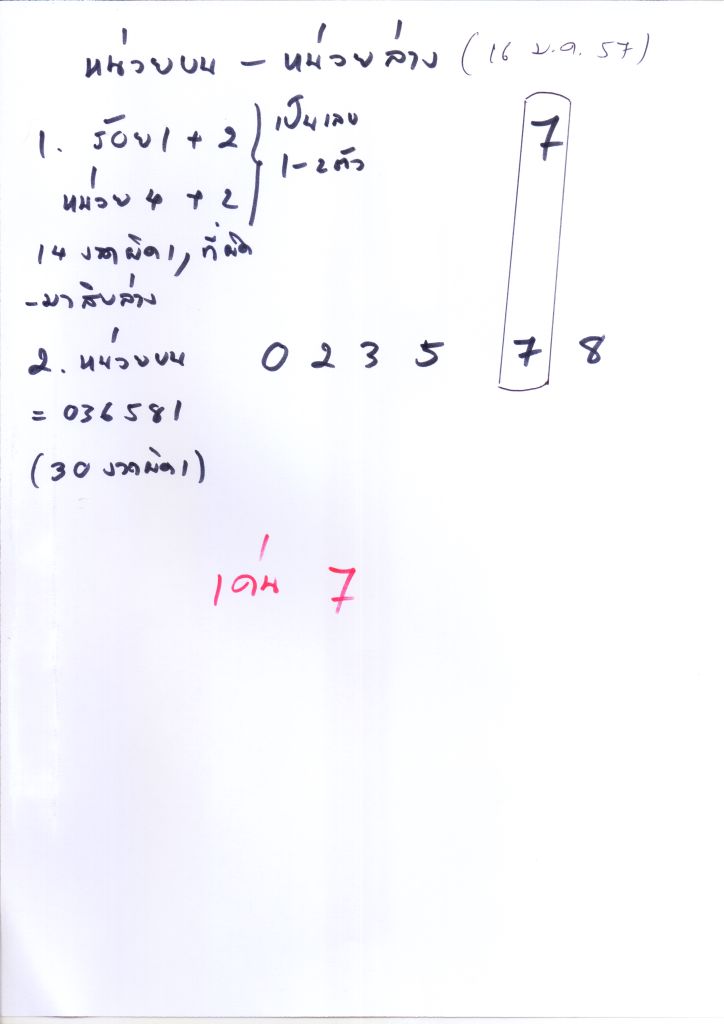 หน่วยบน - หน่วยล่าง (16 ม.ค. 57)
1. ร้อย 1 + 2 } เป็นเลข 7
หน่วย 4 + 2 1-2 ตัว
14 งวดผิด 1, ที่ผิด
-มาสิบล่าง
2. หน่วยบน 0 2 3 5 7 8
= 036581
(30 งวดผิด 1)
เด่น 7